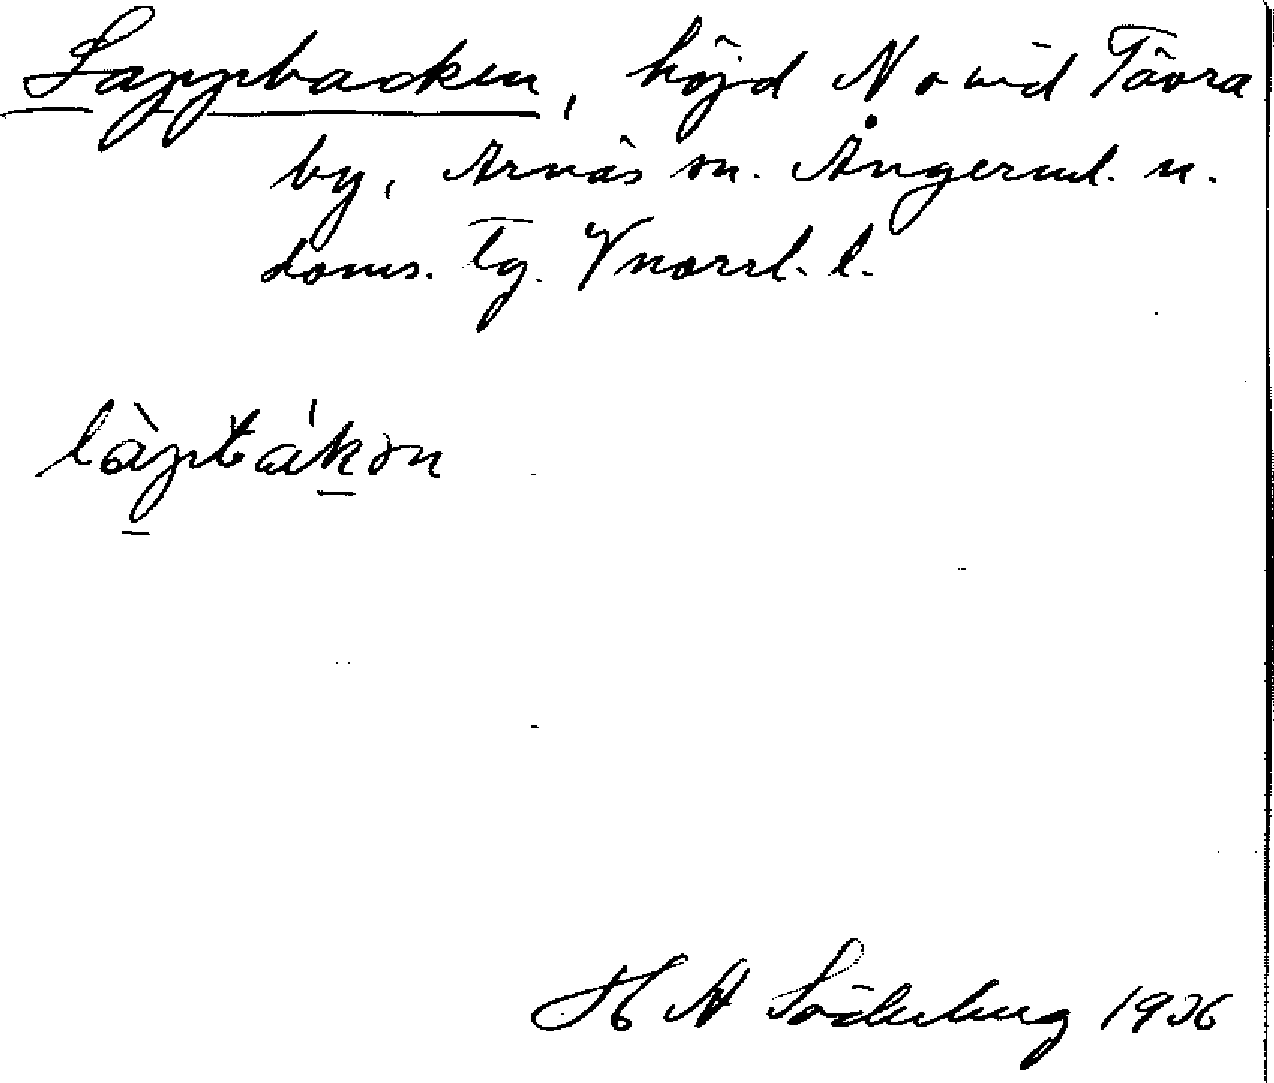 Lappbacken, höjd N o vid Tävra
by, Arnäs sn. Ångerml. n.
doms. Tg. Vnorrl. l.
làpbákən
H A Söderberg 1936